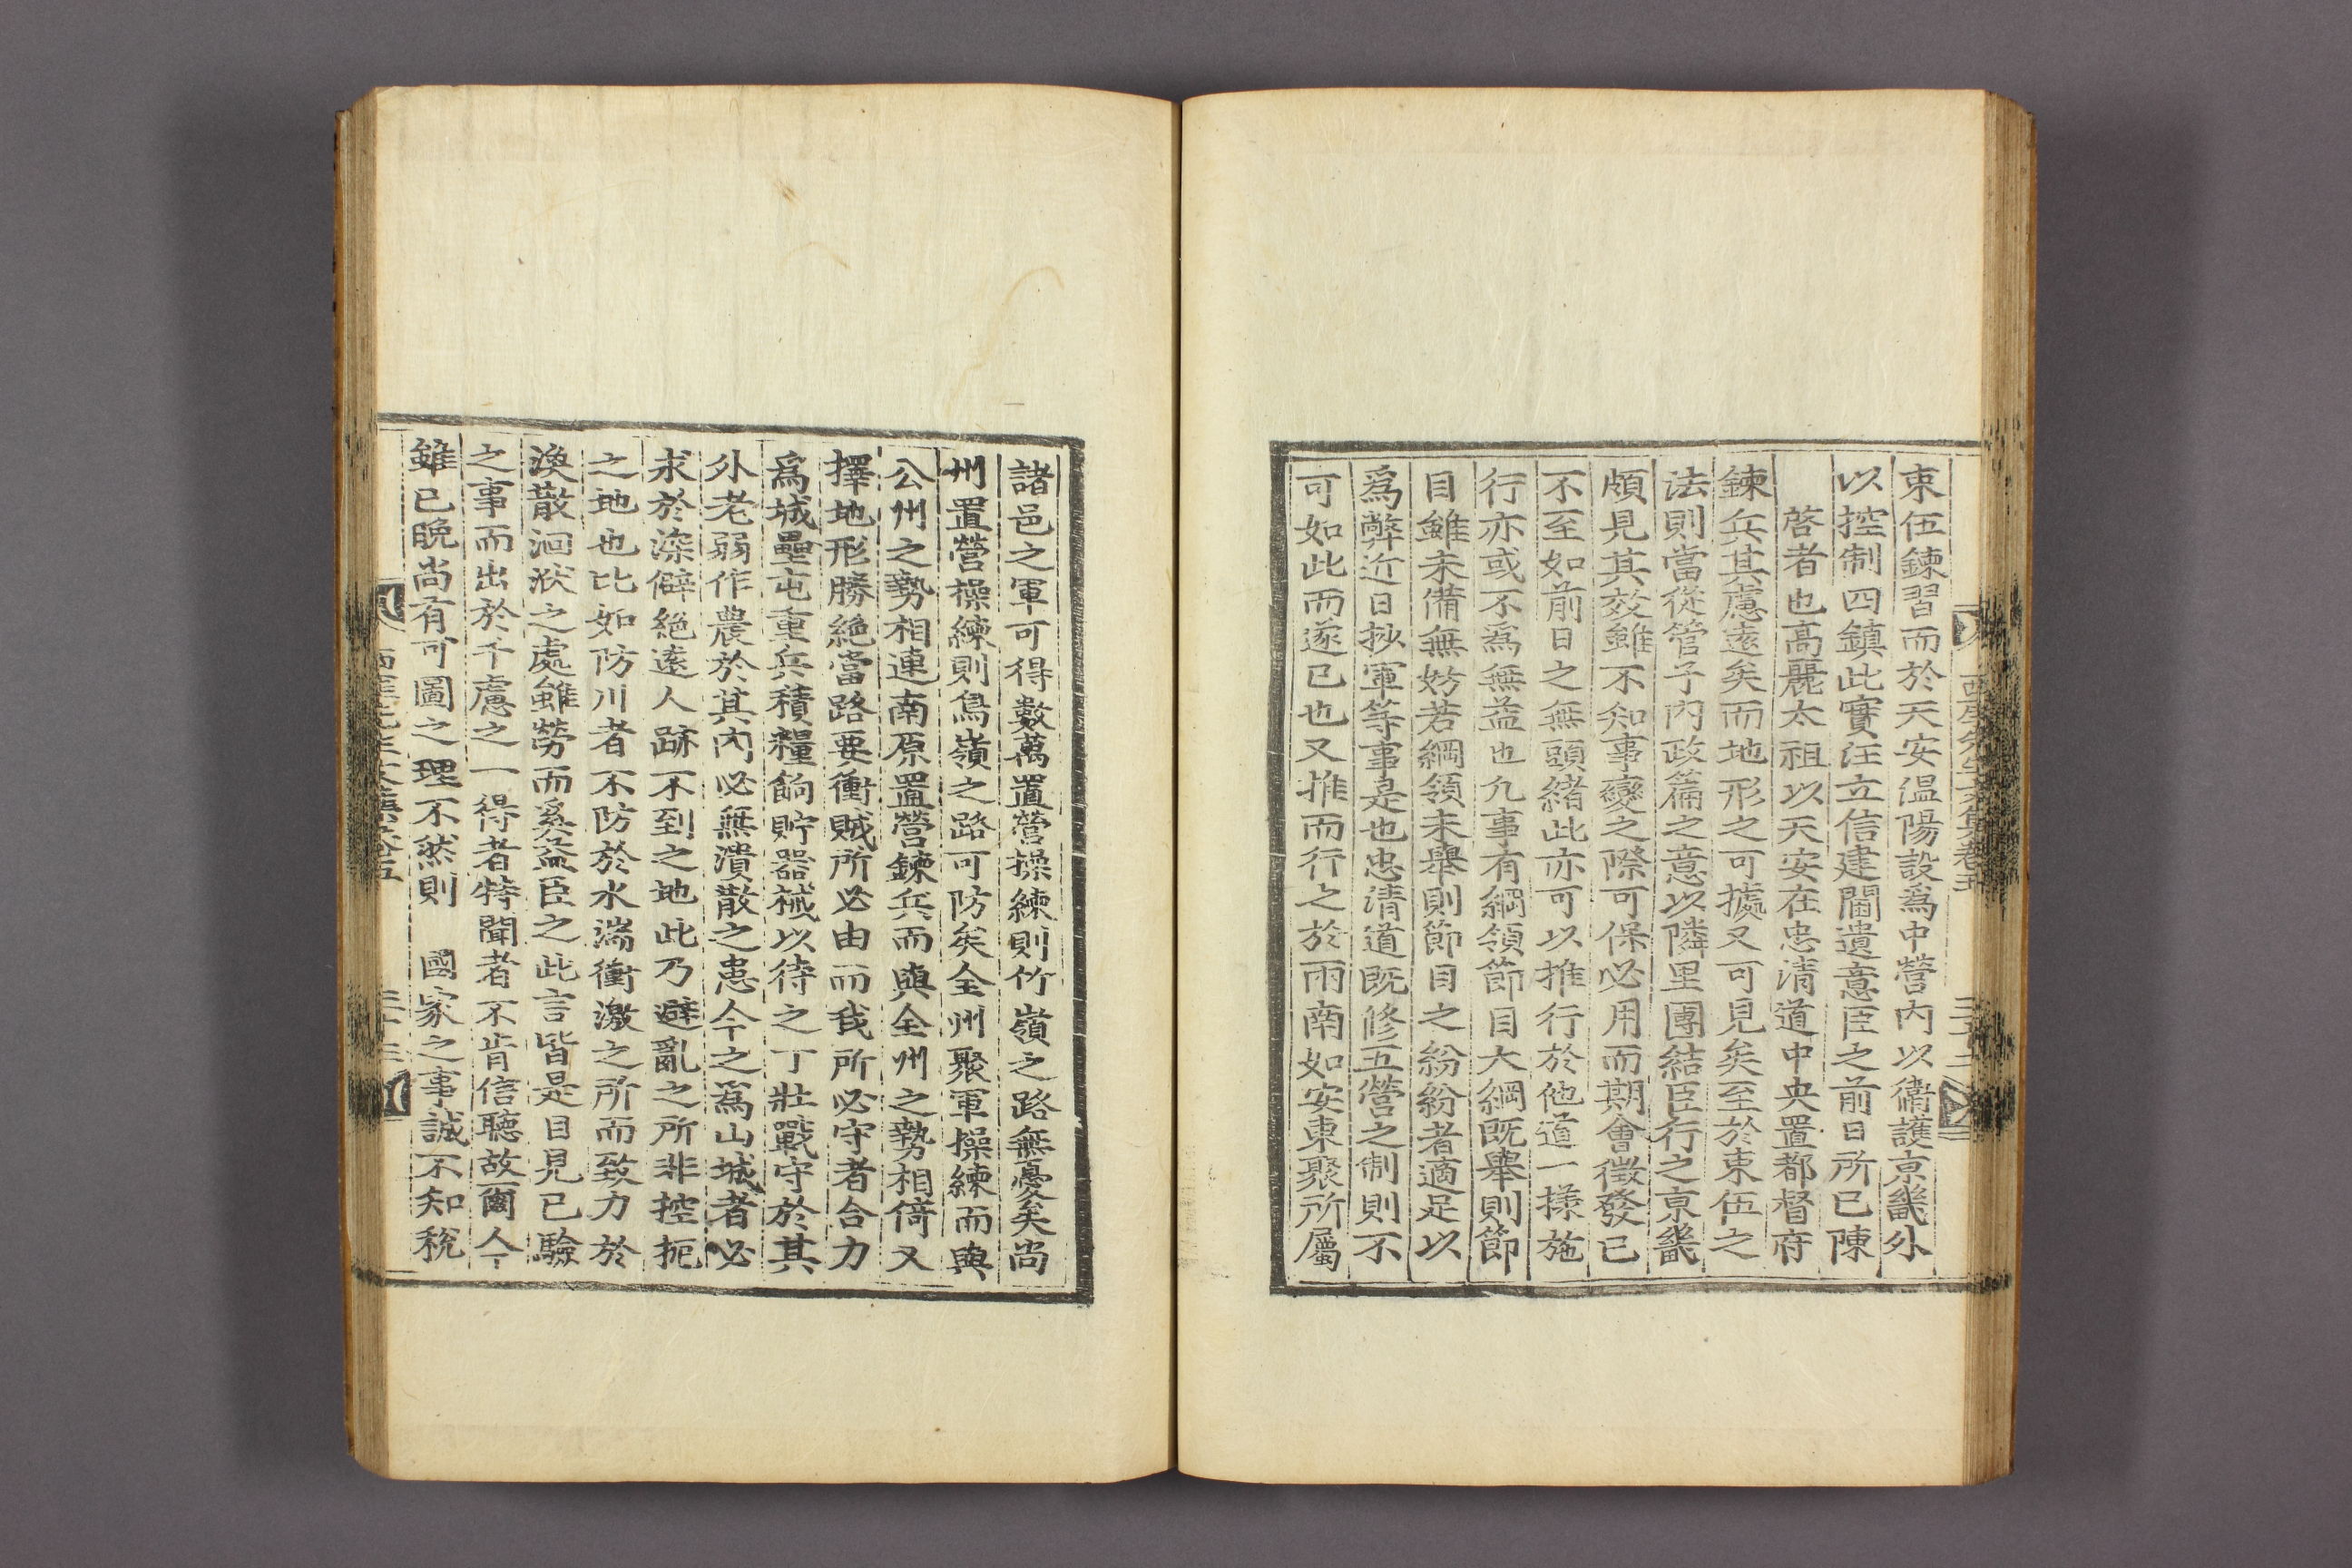 束伍鍊習而於天安溫陽設爲中營內以衛護京畿外
以控制四鎭此實汪立信建閫遺意臣之前日所已陳
啓者也高麗太祖以天安在忠淸道中央置都督府
鍊兵其慮遠矣而地形之可據又可見矣至於束伍之
法則當從管子內政篇之意以隣里團結臣行之京畿
頗見其效雖不知事變之際可保必用而期會徵發已
不至如前日之無頭緖此亦可以推行於他道一㨾施
行亦或不爲無益也凡事有綱領節目大綱旣擧則節
目雖未備無妨若綱領未擧則節目之紛紛者適足以
爲弊近日抄軍等事是也忠淸道旣修五營之制則不
可如此而遂已也又推而行之於兩南如安東聚所屬
西厓先生文集卷五
諸邑之軍可得數萬置營操練則竹嶺之路無憂矣尙
州置營操練則鳥嶺之路可防矣全州聚軍操練而與
公州之勢相連南原置營鍊兵而與全州之勢相倚又
擇地形勝絶當路要衝賊所必由而我所必守者合力
爲城壘屯重兵積糧餉貯器械以待之丁壯戰守於其
外老弱作農於其內必無潰散之患今之爲山城者必
求於深僻絶遠人跡不到之地此乃避亂之所非控扼
之地也比如防川者不防於水湍衝激之所而致力於
渙散洄洑之處雖勞而奚益臣之此言皆是目見已驗
之事而出於千慮之一得者特聞者不肯信聽故爾今
雖已晩尙有可圖之理不然則　國家之事誠不知稅
西厓先生文集卷五